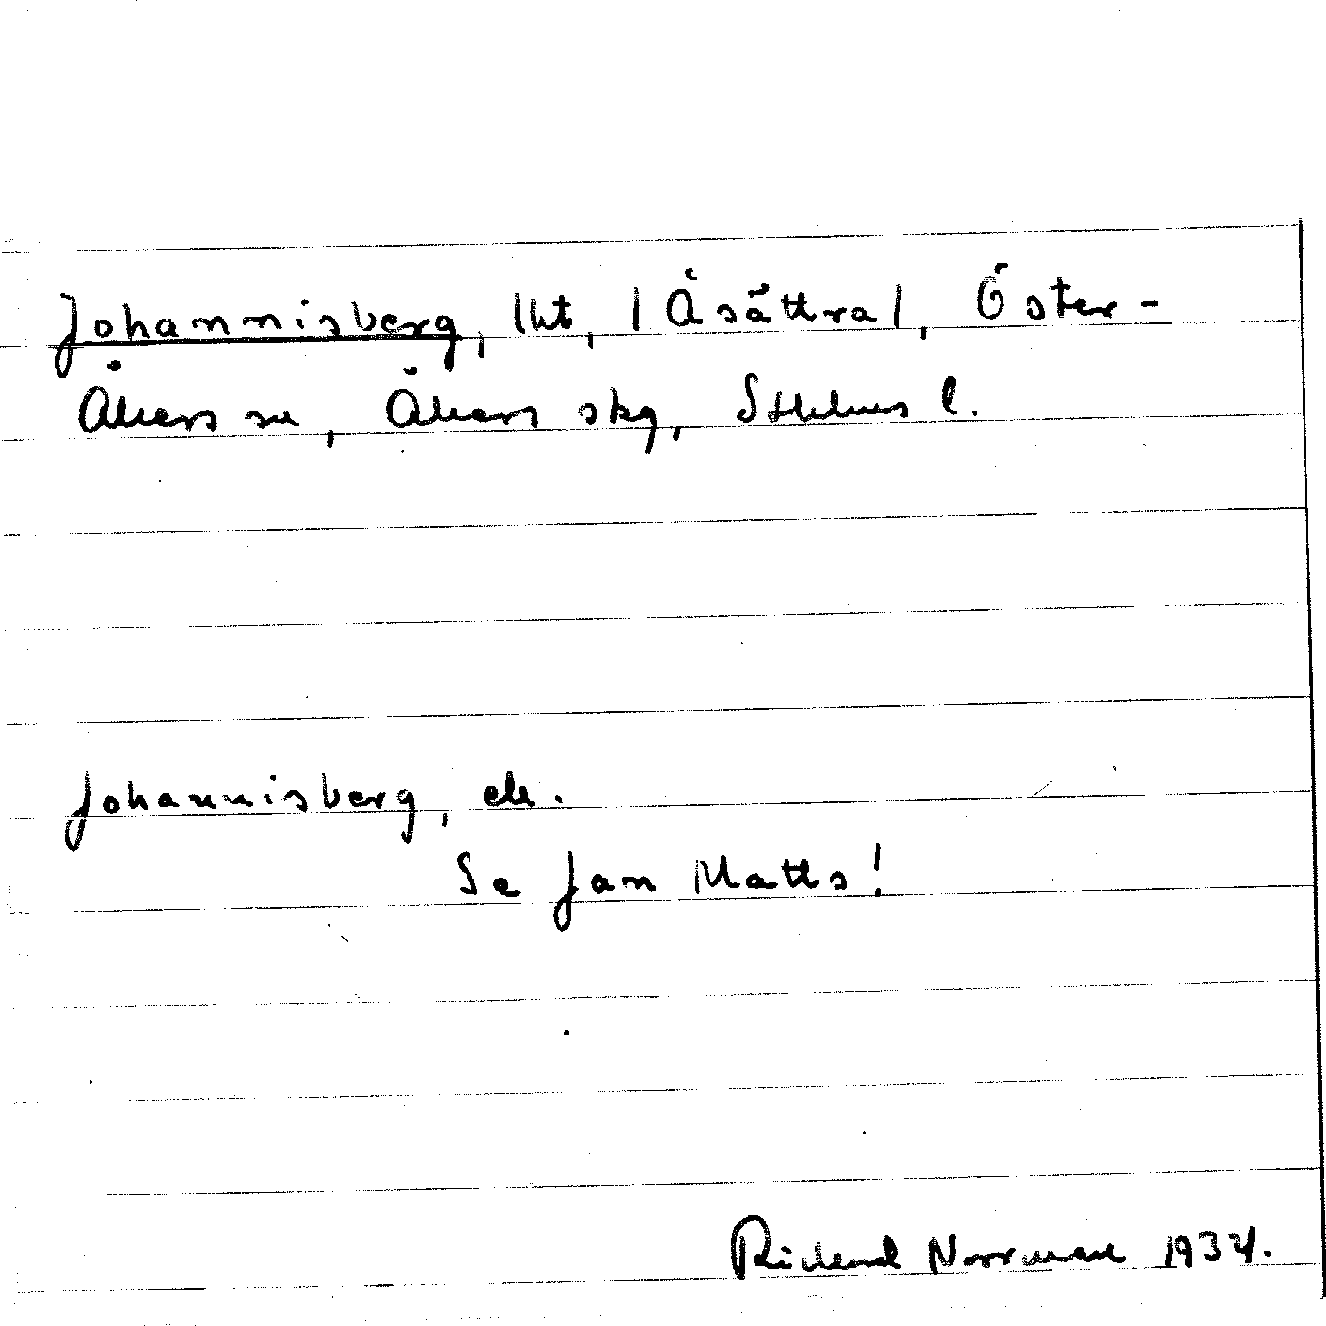 Johannisberg, lht, /Åsättra/, Öster-
Åkers sn, Åkers skg, Sthlms l.
Johannisberg, ek.
Se Jan Matts!
Rickard Norrman 1934.